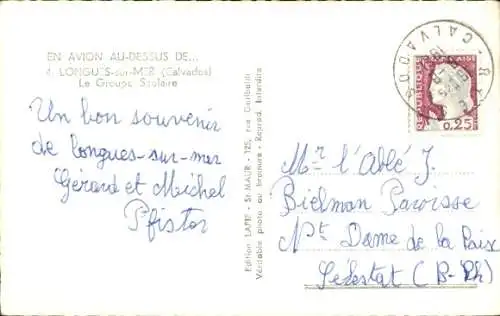 EN AVION AU-DESSUS DE...
4. LONGUES-sur-MER (Calvados)
Le Groupe Scolaire
Un bon souvenir
de longues-sur-mer
Gérard et Michel
Pfister
Edition LAPIE - St-MAUR - 125, rue Garibaldi
Véritable photo au bromure - Reprod. Interdite
CALVADOS
FRANÇAISE
0,25
Mr l'Abbé J.
Bielman Paroisse
Nt Dame de la Paix
Sélestat (B-Rh)